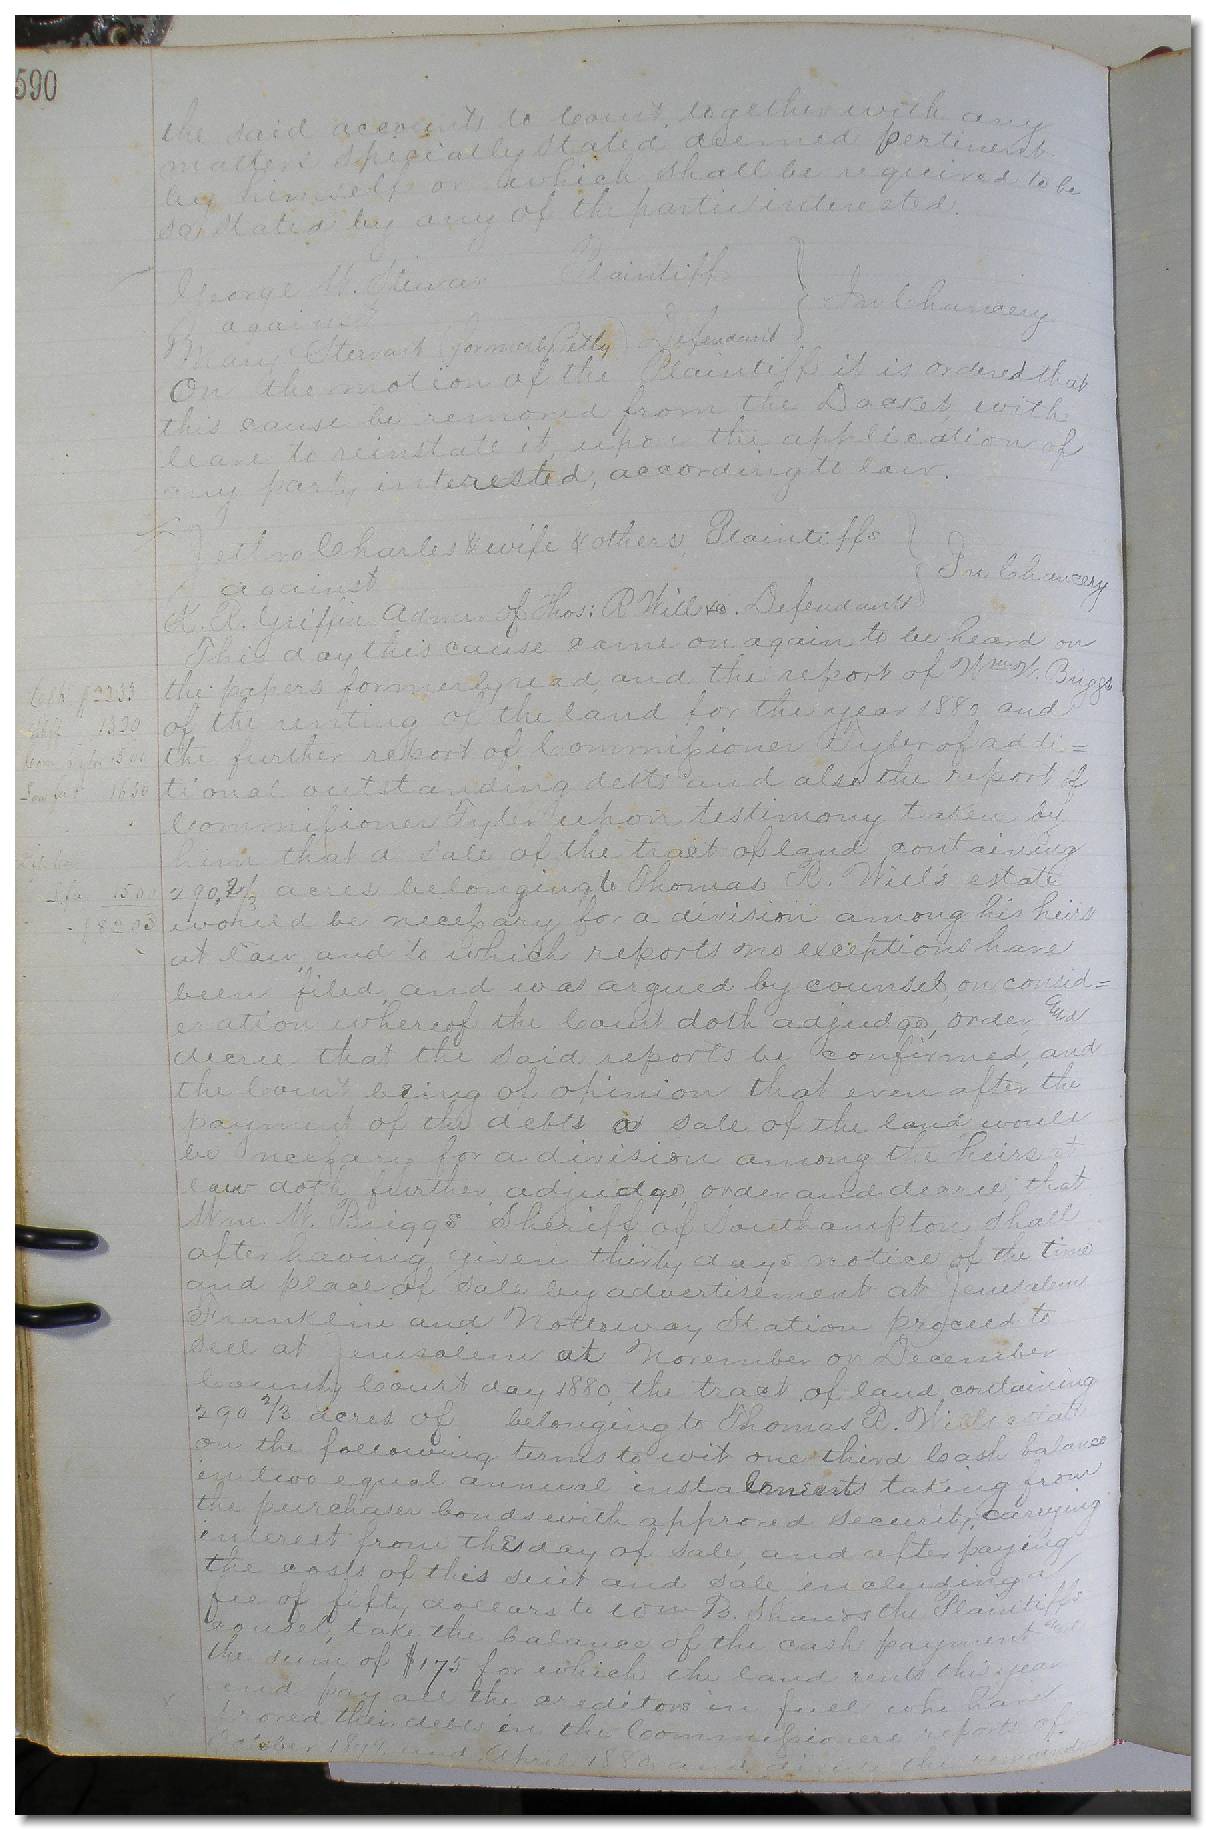 590
the said accounts to Court together with any
matters specially stated deemed pertinent
by himself or which shall be required to be
so stated by any of the parties interested.
George W. Stewart Plaintiff
against
In Chancery
Mary Stewart (formerly Petty) Defendant
On the motion of the Plaintiff it is ordered that
this cause be removed from the Docket, with
leave to reinstate it, upon the application of
any party interested, according to law.
Jethro Charles & wife & others Plaintiffs
against
In Chancery
K. R. Griffin Admr. of Thos: R Will &c. Defendants
This day this cause came on again to be heard on
the papers formerly read, and the report of Wm. W. Briggs
of the renting of the land for the year 1880 and
the further report of Commissioner Tyler of addi=
tional outstanding debts and also the report of
Commissioner Tyler upon testimony taken by
him that a sale of the tract of land containing
290 2/3 acres belonging to Thomas R. Will's estate
would be necessary for a division among his heirs
at law, and to which reports no exceptions have
been filed, and was argued by counsel, on consid=
eration whereof the Court doth adjudge, order, and
decree that the said reports be confirmed, and
the Court being of opinion that even after the
payment of the debts a sale of the land would
be necessary for a division among the heirs at
law doth further adjudge, order and decree, that
Wm. W. Briggs Sheriff of Southampton shall
after having given thirty days notice of the time
and place of sale by advertisement at Jerusalem
Franklin and Nottoway Station proceed to
sell at Jerusalem at November or December
County Court day 1880, the tract of land containing
290 2/3 acres of belonging to Thomas R. Wills estate
on the following terms to wit one third Cash balance
in two equal annual instalments taking from
the purchaser bonds with approved security, carrying
interest from the day of sale, and after paying
the costs of this suit and sale including a
fee of fifty dollars to Wm B. Shands the Plaintiffs
counsel, take the balance of the cash payment and
the sum of $175 for which the land rents this year
and pay all the creditors in full who have
proved their debts in the Commissioners reports of
October and April 1880, and the